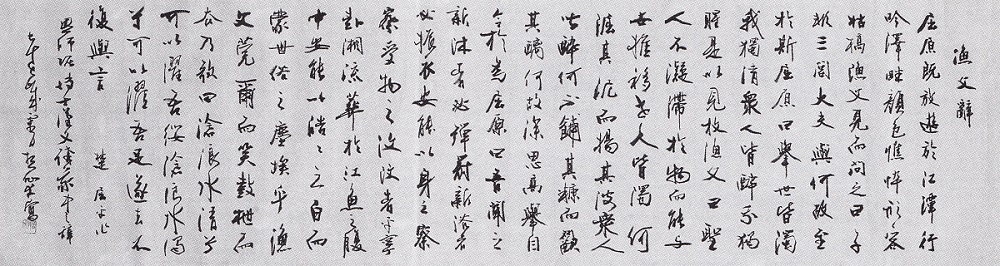 漁父辭
屈原既放遊於江潭行
吟澤畔顏色憔悴形容
枯槁漁父見而問之曰子
非三閭大夫與何故至
於斯屈原曰舉世皆濁
我獨清眾人皆醉我獨
醒是以見放漁父曰聖
人不凝滯於物而能與
世推移世人皆濁何
淈其泥而揚其波眾人
皆醉何不餔其糟而歠
其醨何故深思高舉自
令放為屈原曰吾聞之
新沐者必彈冠新浴者
必振衣安能以身之察
察受物之汶汶者乎寧
赴湘流葬於江魚之腹
中安能以皓皓之白而
蒙世俗之塵埃乎漁
父莞爾而笑鼓枻而
去乃歌曰滄浪水清兮
可以濯吾纓滄浪水濁
兮可以濯吾足遂去不
復與言 楚屈平作